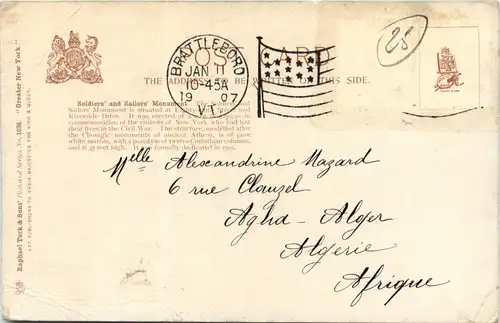 Raphael Tuck & Sons' Postcard Series No. 1038. "Greater New York."
ART PUBLISHERS TO THEIR MAJESTIES THE KING & QUEEN.
POST CARD
THE ADDRESS TO BE WRITTEN ON THIS SIDE.
BRATTLEBORO
JAN 11
10-45A
1907
VT.
25
Soldiers' and Sailors' Monument
Sailors' Monument is situated at
Riverside Drive. It was erected
commemoration of the citizens of New York who had lost
their lives in the Civil War. The structure, modelled after
the Choragic monuments of ancient Athens, is of pure
white marble, with a peristyle of twelve Corinthian columns,
and is 90 feet high. It was formally dedicated in 1902.
Melle Alexandrine Mazard
6 rue Clauzel
Agha-Alger
Algérie
Afrique